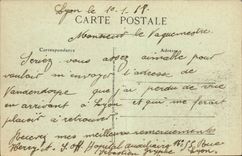 Lyon le 10-1-15
CARTE POSTALE
Monsieur le Vaguemestre
Correspondance Adresse
Seriez vous assez aimable pour
vouloir m'envoyer l'adresse de
Vandendorpe que j'ai perdu de vue
en arrivant à Lyon et qui me ferait
plaisir à retrouver
Recevez mes meilleurs remerciements
Hôpital auxiliaire Rue
Lyon